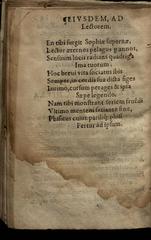 EIVSDEM, AD
Lectorem.
En tibi surgit Sophiæ supernæ,
Lector æternos pelagus
Sensium locis radians quadriga
Ima tuorum.
Hoc brevi vita sociatus ibis
Semper, in cordis sua dicta figes
Intimo, cursum peragens &
Sæpe legendo.
Nam tibi monstrat seriem
Vitimo
cum
Fertur ad ipsum.